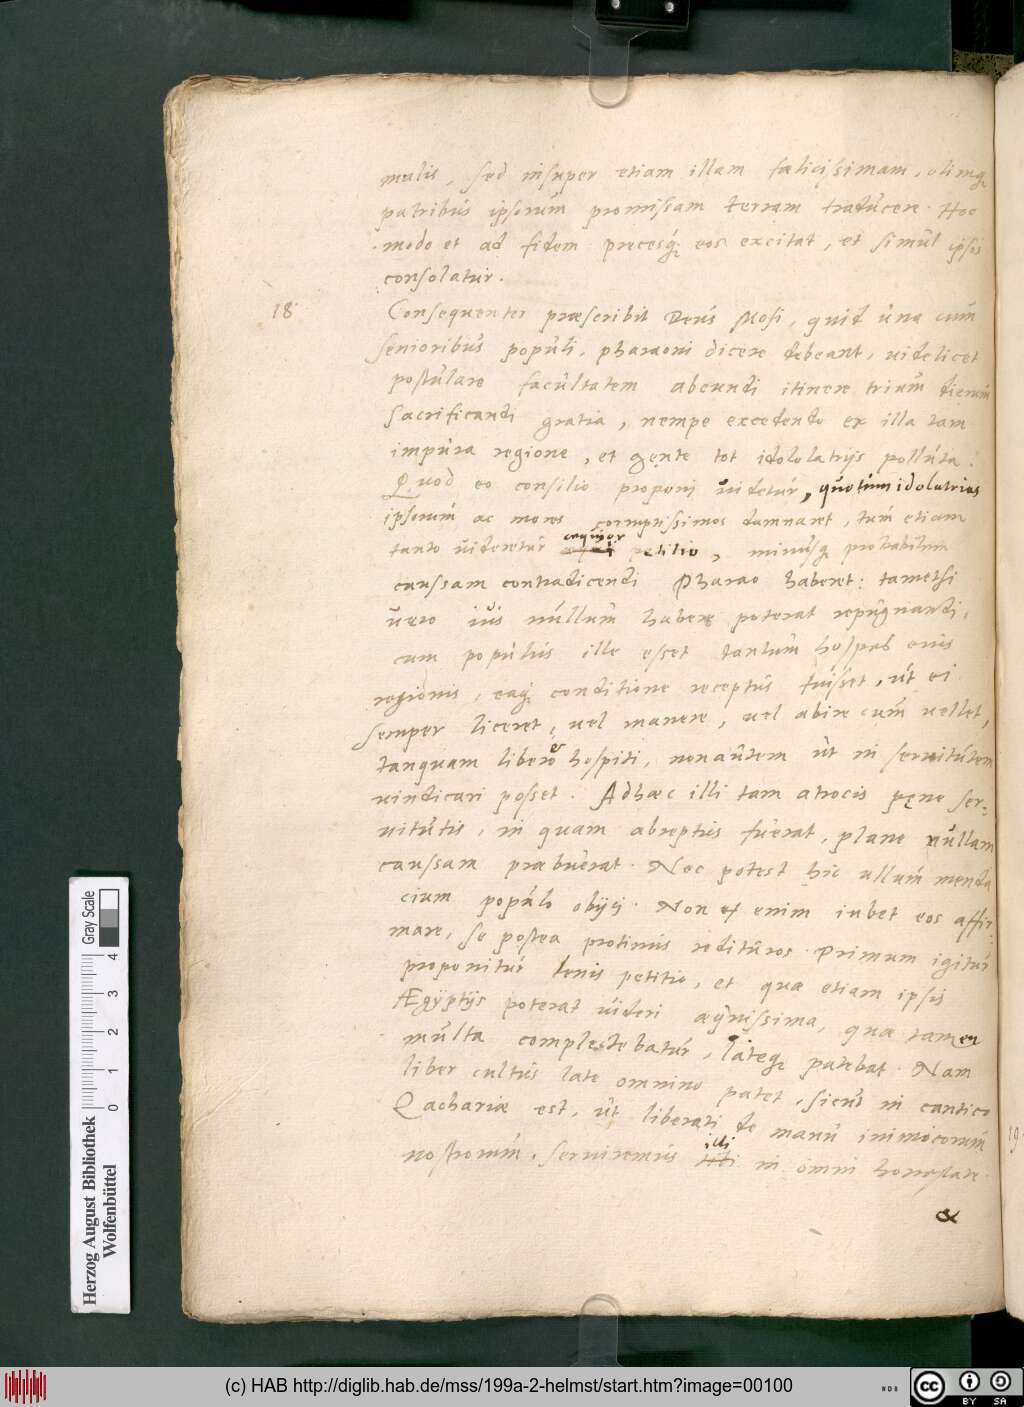 malis, sed insuper etiam illam fœlicissimam, olimq;
patribus ipsorum promissam terram traducere. Hoc
modo et ad fidem precesq; eos excitat, et simul ipsis
consolatur.
18 Consequenter præscribit Deus Mosi, quid una cum
senioribus populi, pharaoni dicere debeant, uidelicet
postulare facultatem abeundi itinere trium dierum
sacrificandi gratia, nempe excedendo ex illa tam
impura regione, et gente tot idololatrijs polluta:
Quod eo consilio proponi uidetur, quo tum idolatrias
ipsorum ac mores corruptissimos damnaret, tum etiam
tanto uideretur aequior petitio, minusq; probabilem
caussam contradicendi Pharao haberet: tametsi
uero ius nullum habere poterat repugnandi,
cum populus ille esset tantum hospes euis
regionis, eaq; conditione receptus fuisset, ut ei
semper liceret, uel manere, uel abire cum uellet,
tanquam libero hospiti, non autem ut in seruitutem
uindicari posset. Adhæc illi tam atrocis pęne ser-
uitutis, in quam abreptus fuerat, plane nullam
caussam præbuerat. Nec potest hic ullum menda
cium populo obijci. Non enim iubet eos affir-
mare, se postea protinus redituros. Primum igitur
proponitur lenis petitio, et quæ etiam ipsis
Ægyptijs poterat uideri æquissima, quæ tamen
multa complectebatur, lateq; patebat. Nam
liber cultus late omnino patet, sicut in cantico
Zachariæ est, ut liberati de manu inimicorum
nostrorum, seruiremus illi in omni honestate.
&
19
Herzog August Bibliothek
Wolfenbüttel
Gray Scale
0 1 2 3 4
(c) HAB http://diglib.hab.de/mss/199a-2-helmst/start.htm?image=00100
cc BY SA